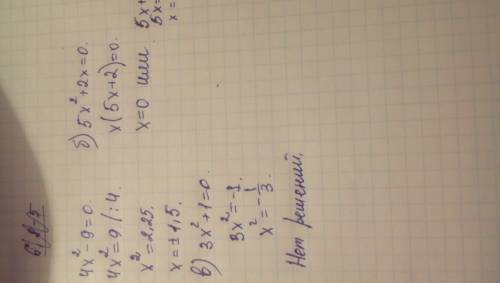 4x² - 9 = 0.
4x² = 9 | : 4.
x² = 2,25.
x = ± 1,5.
б) 5x² + 2x = 0.
x(5x + 2) = 0.
x = 0 или
5x
5x =
x =
в) 3x² + 1 = 0.
3x² = -1.
x² = -1/3.
Нет решений.